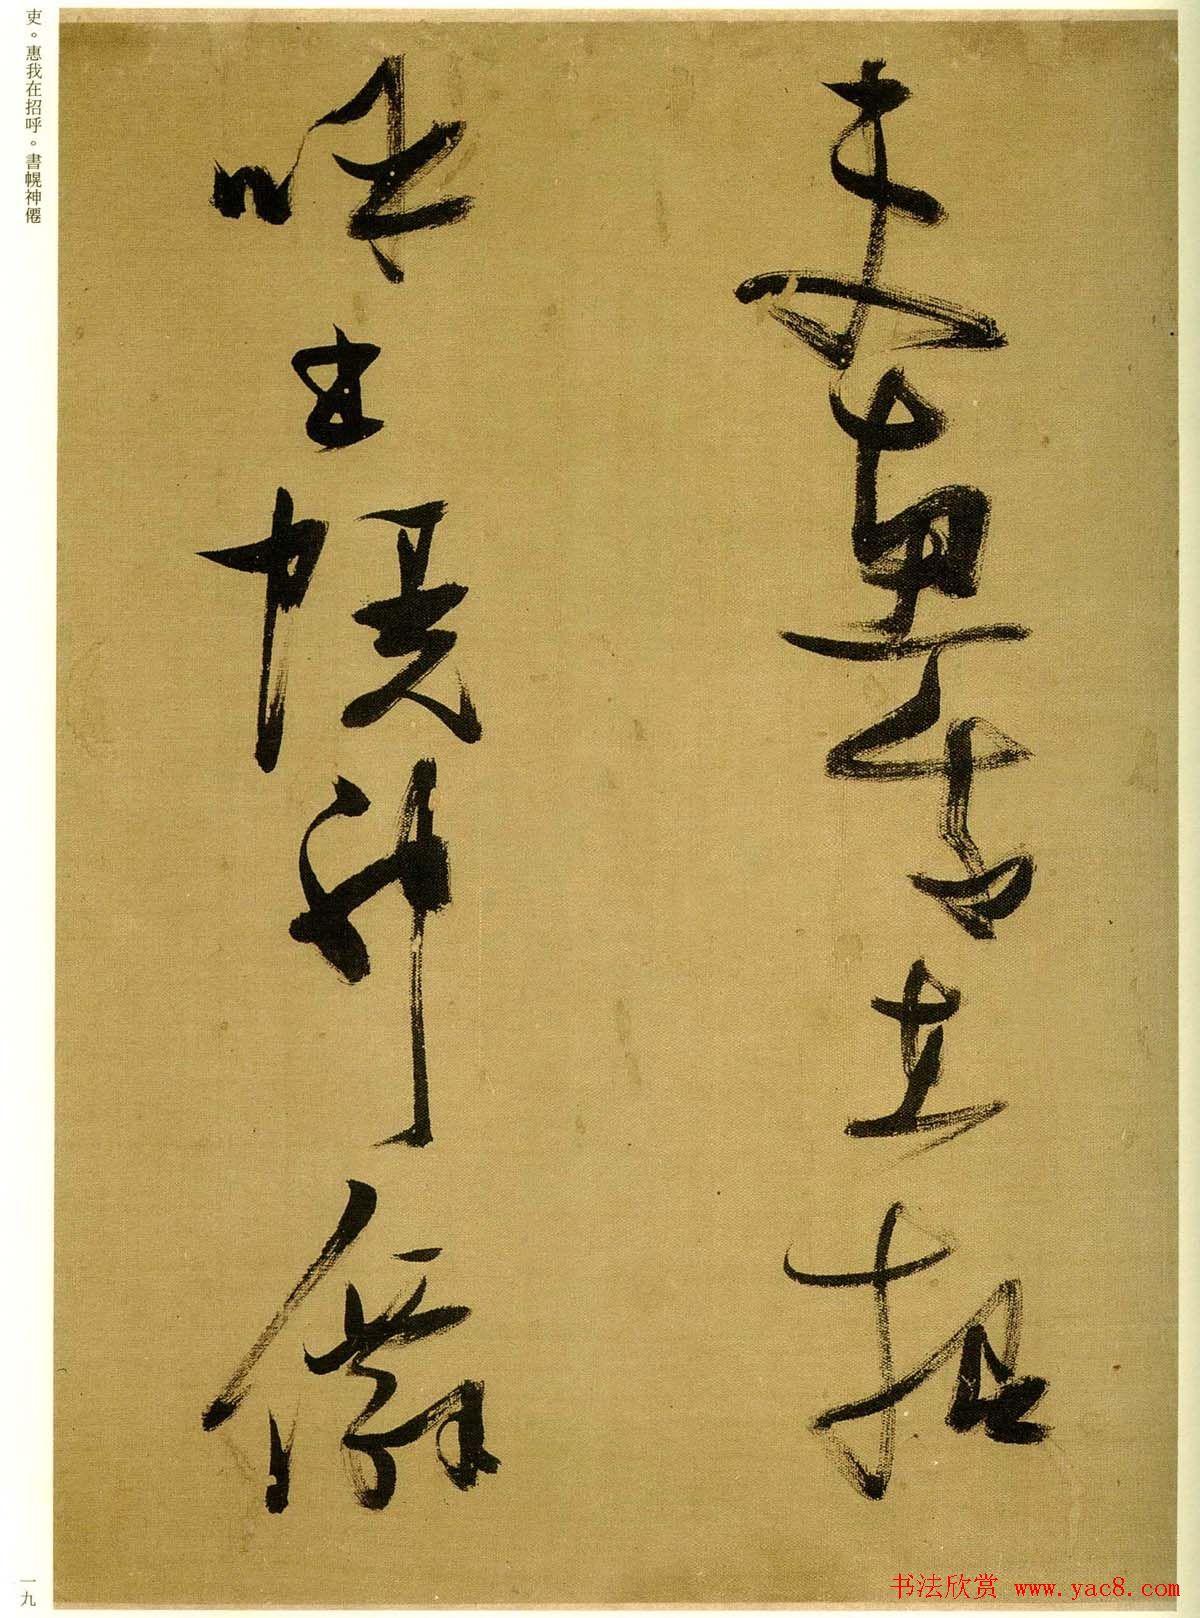 吏惠我在招
呼書幌神僊
吏。惠我在招呼。書幌神僊
一九
书法欣赏 www.yac8.com